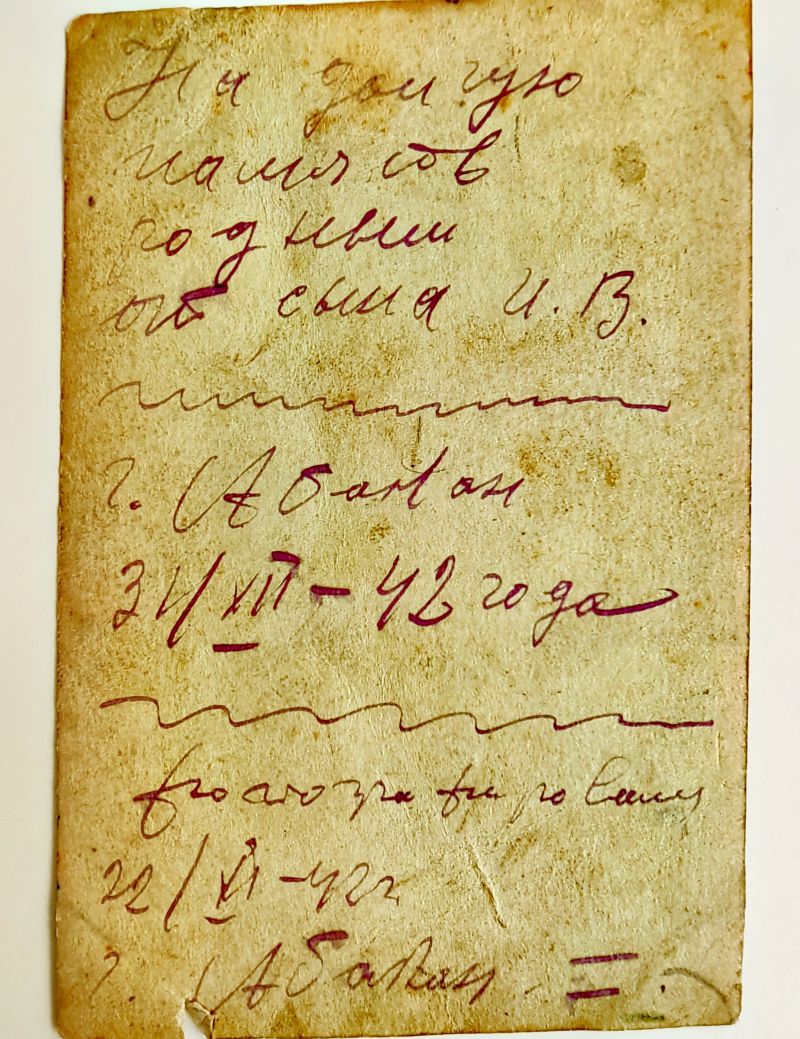 На долгую
память
родным
от сына И.В.
г. Абакан
31/XII-42 года
фотографировались
22/XI-42г
г. Абакан